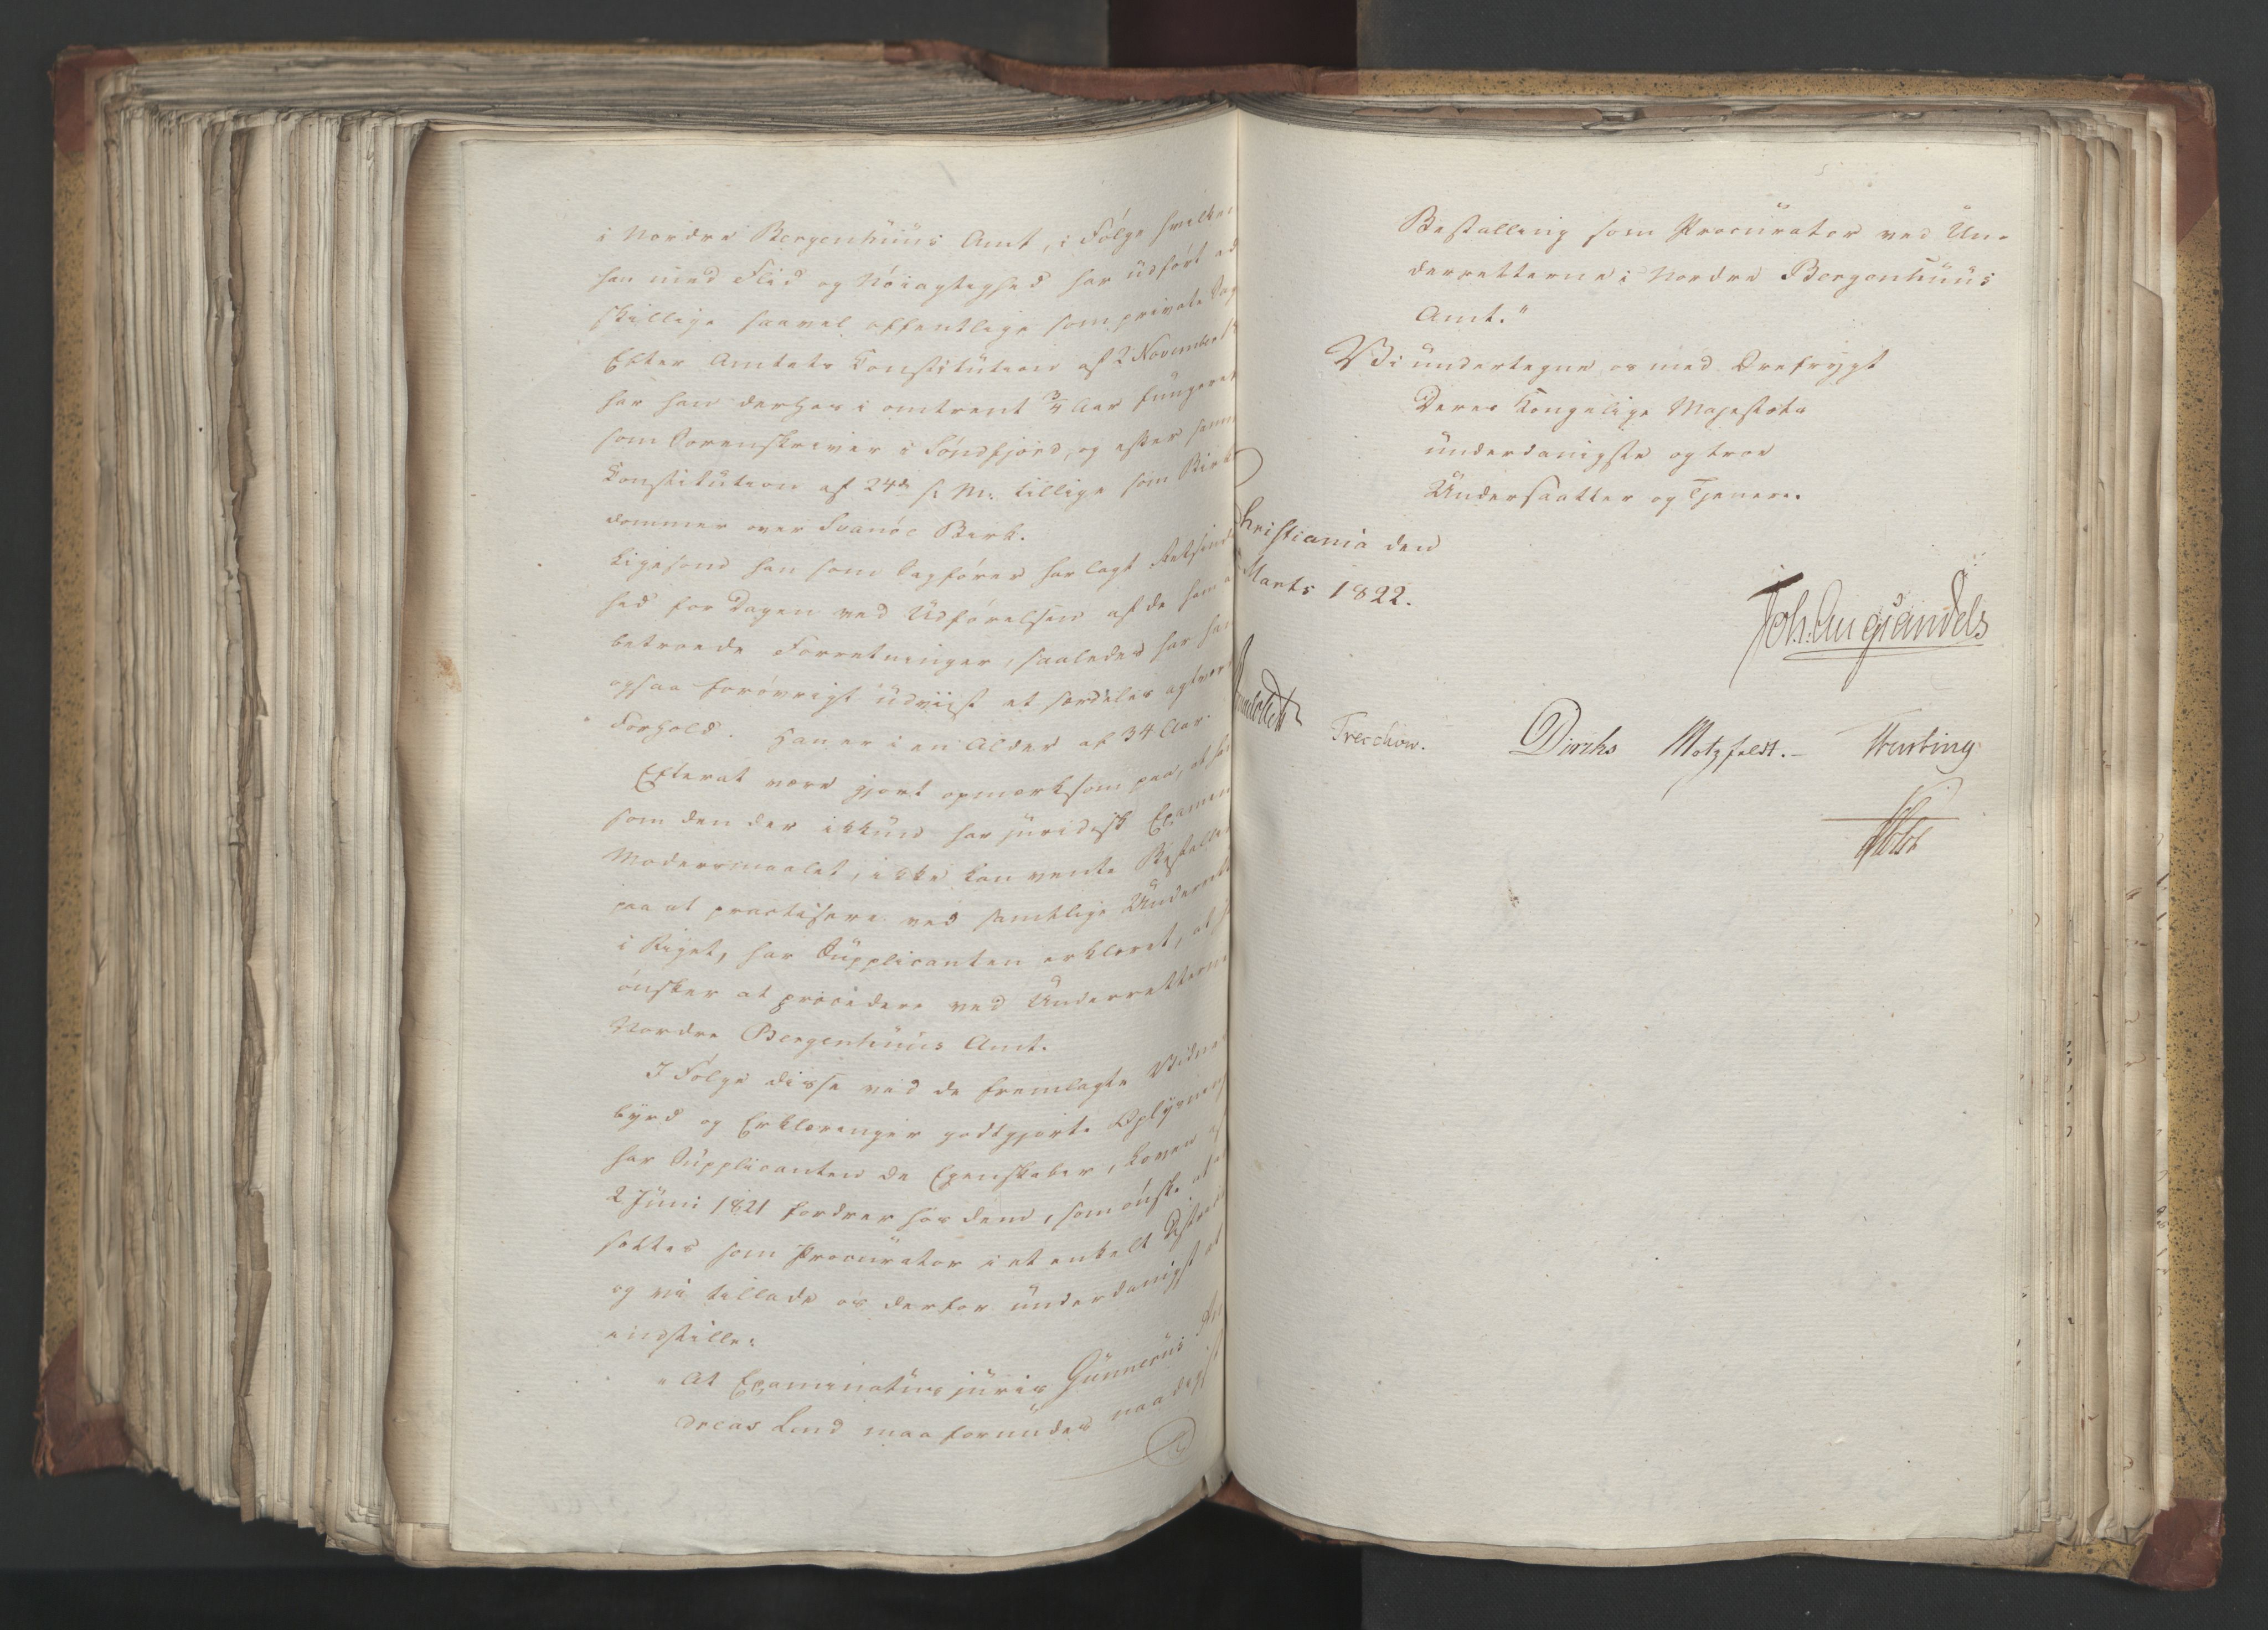 i Nordre Bergenhuus Amt, i Følge hvilken
han med Flid og Nøiagtighed har udført ad
skillige saavel offentlige som private Sag
Efter Amtets Constitution af 2 November
har han derhos i omtrent 3/4 Aar fungeret
som Sorenskriver i Søndfjord, og efter samm
Constitution af 24de s. M. tillige som Birk
dommer over Svanøe Birk.
Ligesom han som Sagfører har lagt Retsind
hed for Dagen ved Udførelsen af de ham
betroede Forretninger, saaledes har han
ogsaa forøvrigt udviist et særdeles agtvær
Forhold. Han er i en Alder af 34 Aar.
Efterat være gjort opmærksom paa, at
som den der ikkun har juridisk Examen
Modersmaalet, ikke kan vente Bestalli
paa at practisere ved samtlige Underrett
i Riget, har Supplicanten erklæret, at
ønsker at procedere ved Underretterne
Nordre Bergenhuus Amt.
I Følge disse ved de fremlagte Vidnes
byrd og Erklæringer godtgjorte Oplysning
har Supplicanten de Egenskaber, Loven af
2 Juni 1821 fordrer hos dem, som ønske at
sættes som Procurator i et enkelt Distrik
og vi tillade os derfor underdanigst at
indstille:
"At Examinatus juris Gunnerus An
dreas Lind maa forundes naadigst
Bestalling som Procurator ved Un-
derretterne i Nordre Bergenhuus
Amt."
Vi undertegne os med Ærefrygt
Deres Kongelige Majestæts
underdanigste og troe
Undersaatter og Tjenere.
Christiania den
Marts 1822.
Joh. Aug. Sandels
Treschow.
Diriks Motzfeldt. Krebting
Holst